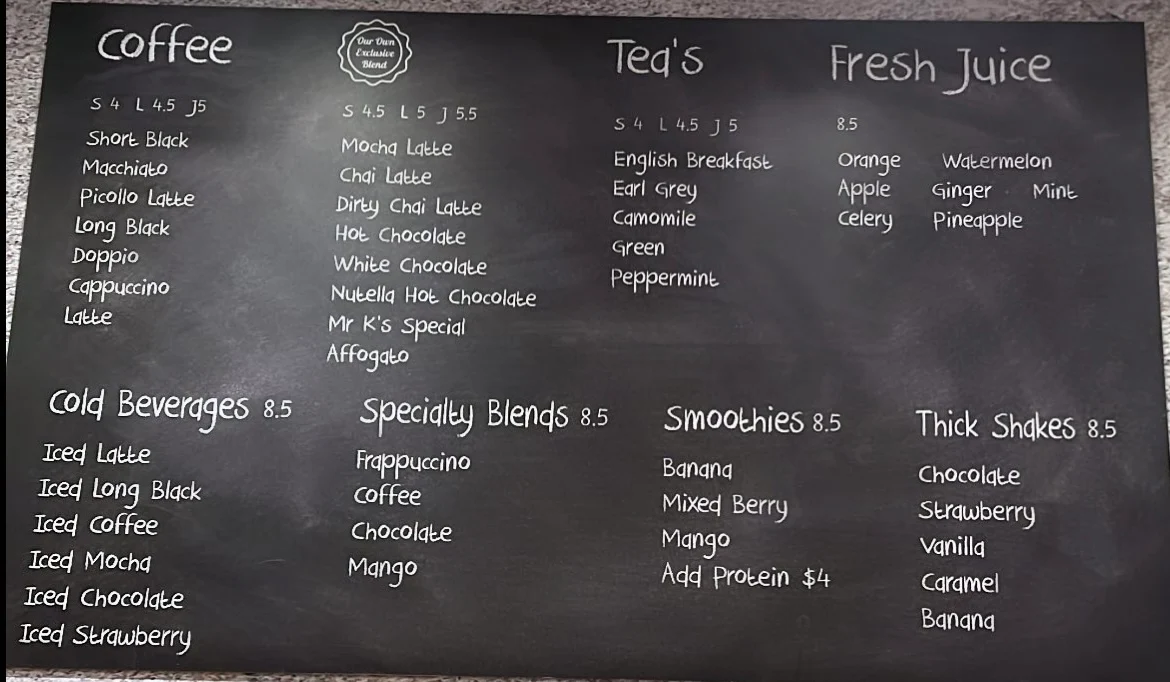 Coffee
S 4 L 4.5 J5
Short Black
Macchiato
Picollo Latte
Long Black
Doppio
Cappuccino
Latte
Our Own
Exclusive
Blend
S 4.5 L 5 J 5.5
Mocha Latte
Chai Latte
Dirty Chai Latte
Hot Chocolate
White Chocolate
Nutella Hot Chocolate
Mr K's Special
Affogato
Tea's
S 4 L 4.5 J 5
English Breakfast
Earl Grey
Camomile
Green
Peppermint
Fresh Juice
8.5
Orange Watermelon
Apple Ginger Mint
Celery Pineapple
Cold Beverages 8.5
Iced Latte
Iced Long Black
Iced Coffee
Iced Mocha
Iced Chocolate
Iced Strawberry
Specialty Blends 8.5
Frappuccino
Coffee
Chocolate
Mango
Smoothies 8.5
Banana
Mixed Berry
Mango
Add Protein $4
Thick Shakes 8.5
Chocolate
Strawberry
Vanilla
Caramel
Banana